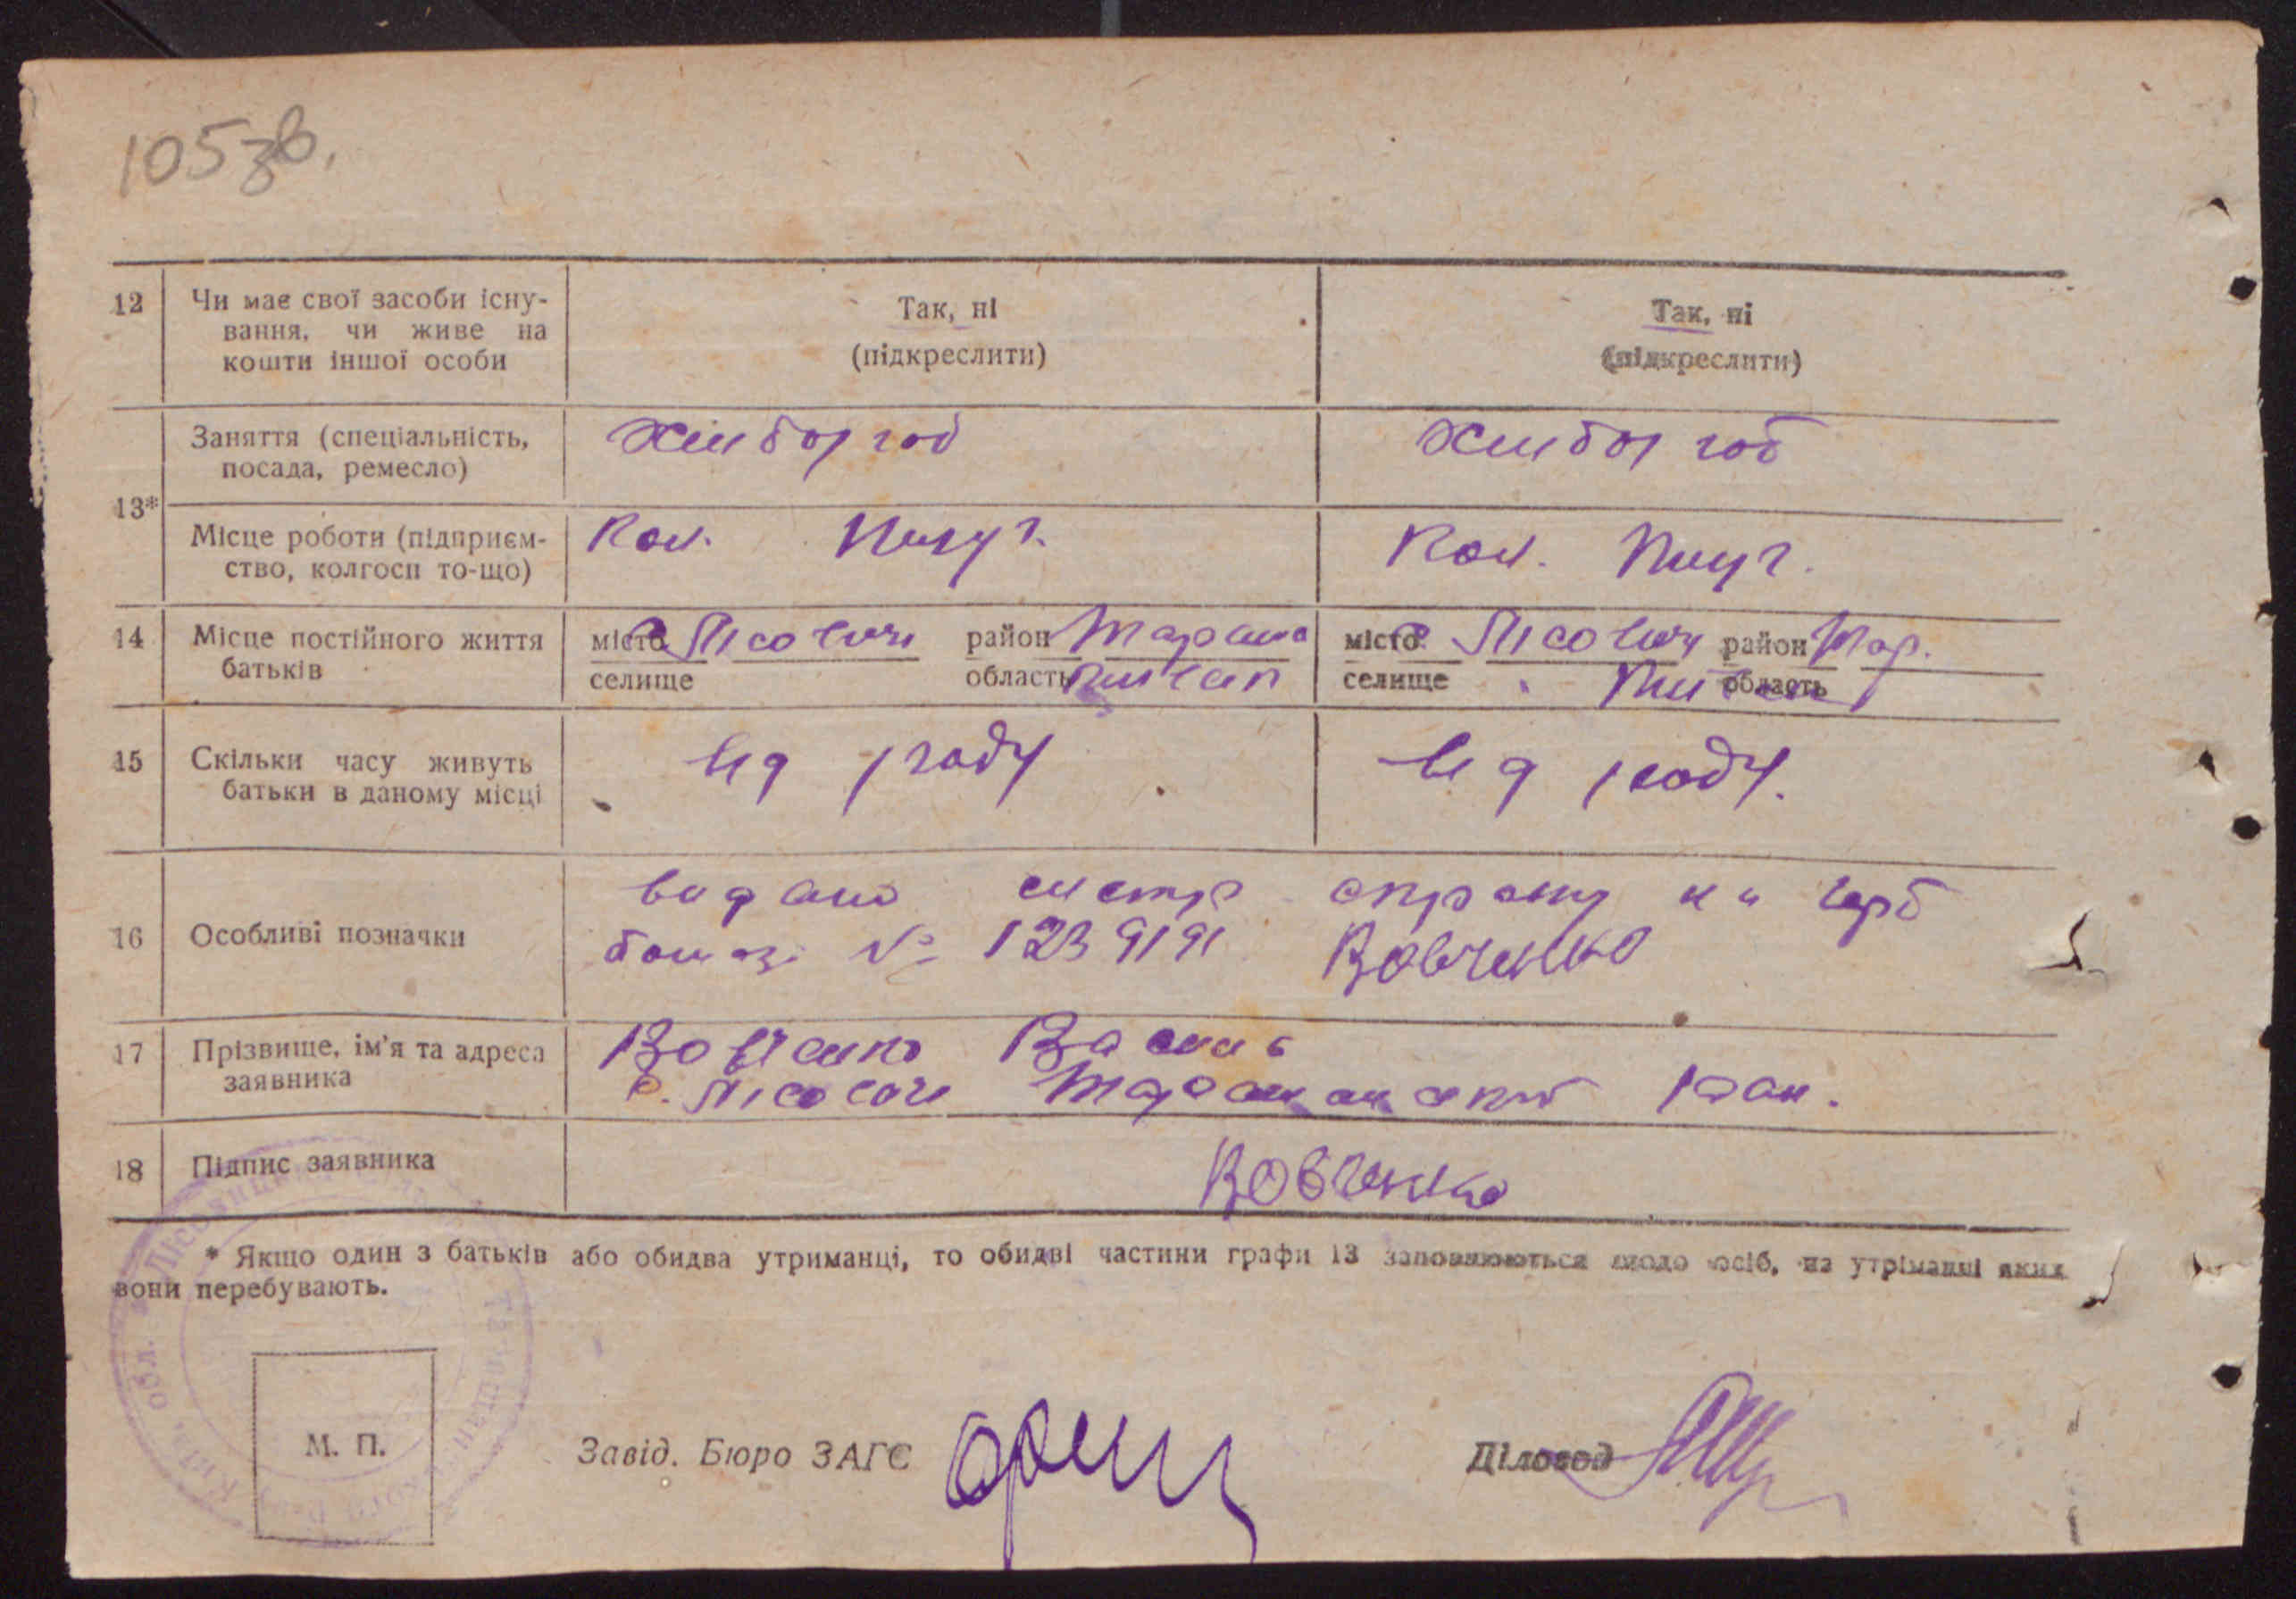 105 зв.
12 Чи має свої засоби існу- Так, ні Так, ні
вання, чи живе на (підкреслити) (підкреслити)
кошти іншої особи
13* Заняття (спеціальність, Хлібороб Хлібороб
посада, ремесло)
Місце роботи (підприєм- Кол. Плуг. Кол. Плуг.
ство, колгосп то-що)
14 Місце постійного життя місто с Лісовичі район Тараща місто с Лісовичі район Тар.
батьків селище область Київ селище область Київ
15 Скільки часу живуть від роду від роду.
батьки в даному місці
16 Особливі позначки видано справку на герб
бомазі № 1239191 Вовченко
17 Прізвище, ім'я та адреса Вовченко Василь
заявника с. Лісовичі Таращанський рай.
18 Підпис заявника Вовченко
* Якщо один з батьків або обидва утриманці, то обидві частини графи 13 заповнюються щодо осіб, на утріманні яких
вони перебувають.
М. П. Завід. Бюро ЗАГС Діловод